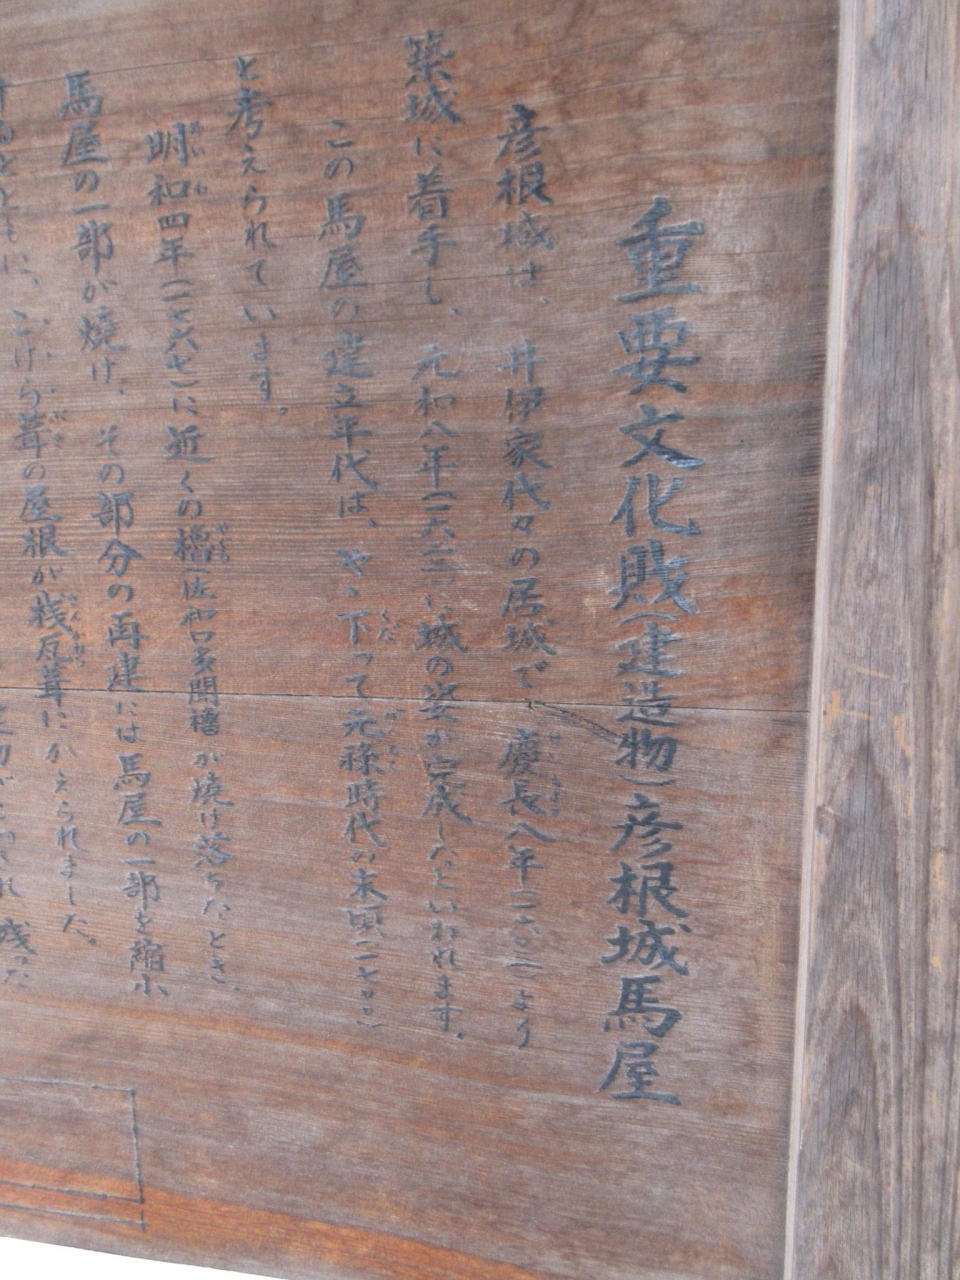 重要文化財(建造物)彦根城馬屋
彦根城は、井伊家代々の居城で、慶長八年(一六〇三)より
築城に着手し、元和八年(一六二二)に城の姿が完成したといわれます。
この馬屋の建立年代は、やゝ下って元禄時代の末頃(一七〇〇)
と考えられています。
明和四年(一七六七)に近くの櫓(佐和口多聞櫓)が焼け落ちたとき、
馬屋の一部が焼け、その部分の再建には馬屋の一部を縮小
するとともに、こけら葺の屋根が桟瓦葺にかえられました。